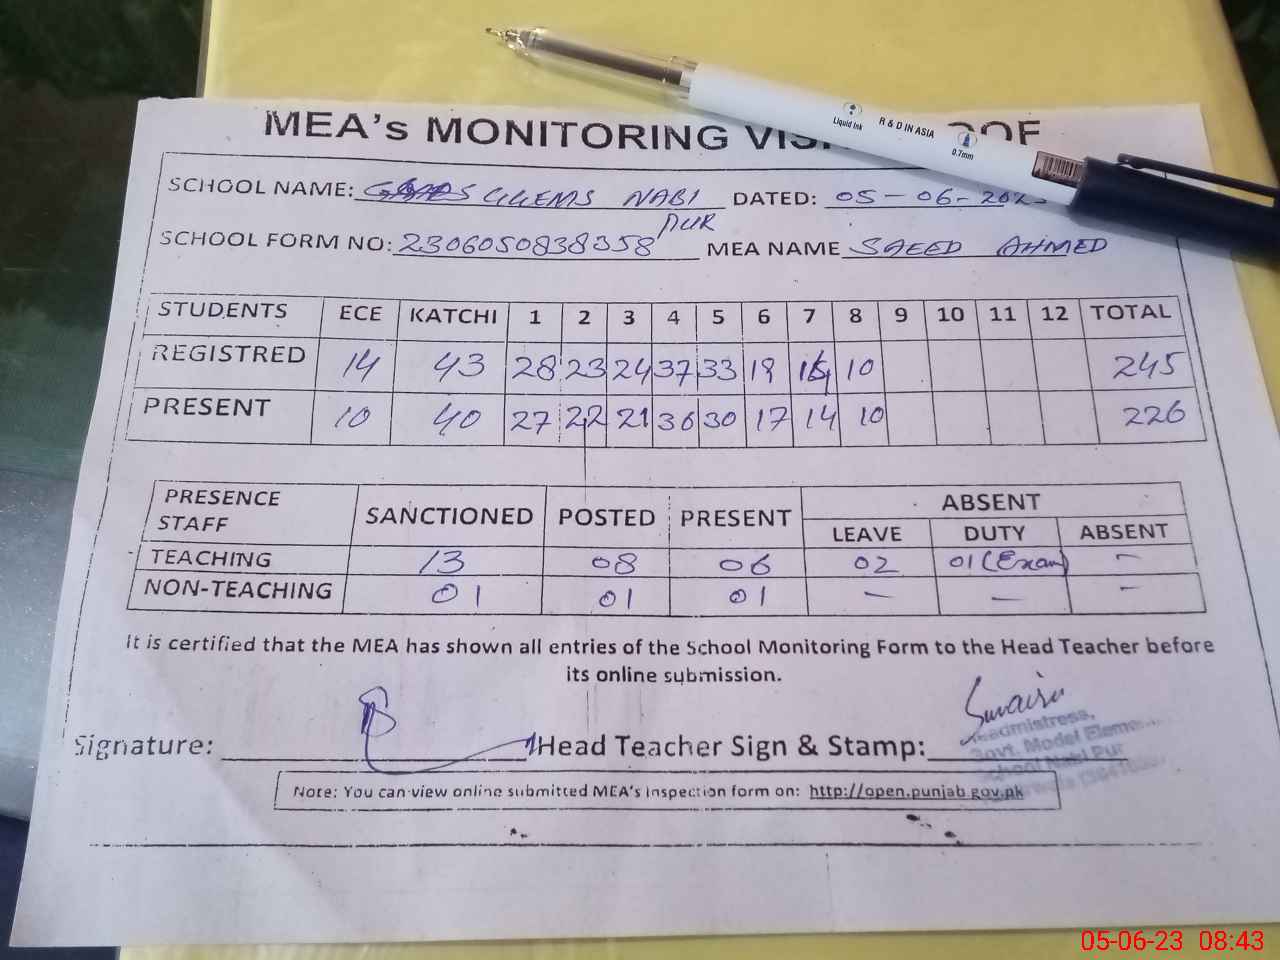 Liquid Ink R & D IN ASIA 0.7mm
MEA's MONITORING
SCHOOL NAME: GGEMS NABI PUR DATED: 05-06-202
SCHOOL FORM NO: 2306050838358 MEA NAME SAEED AHMED
STUDENTS ECE KATCHI 1 2 3 4 5 6 7 8 9 10 11 12 TOTAL
REGISTRED 14 43 28 23 24 37 33 19 14 10 245
PRESENT 10 40 27 22 21 36 30 17 14 10 226
PRESENCE STAFF SANCTIONED POSTED PRESENT ABSENT
LEAVE DUTY ABSENT
TEACHING 13 08 06 02 01 (Exam) -
NON-TEACHING 01 01 01 - - -
It is certified that the MEA has shown all entries of the School Monitoring Form to the Head Teacher before
its online submission.
Signature: Head Teacher Sign & Stamp:
Headmistress,
Govt. Model Elemen
School Nabi Pur
Note: You can view online submitted MEA's inspection form on: http://open.punjab.gov.pk
05-06-23 08:43